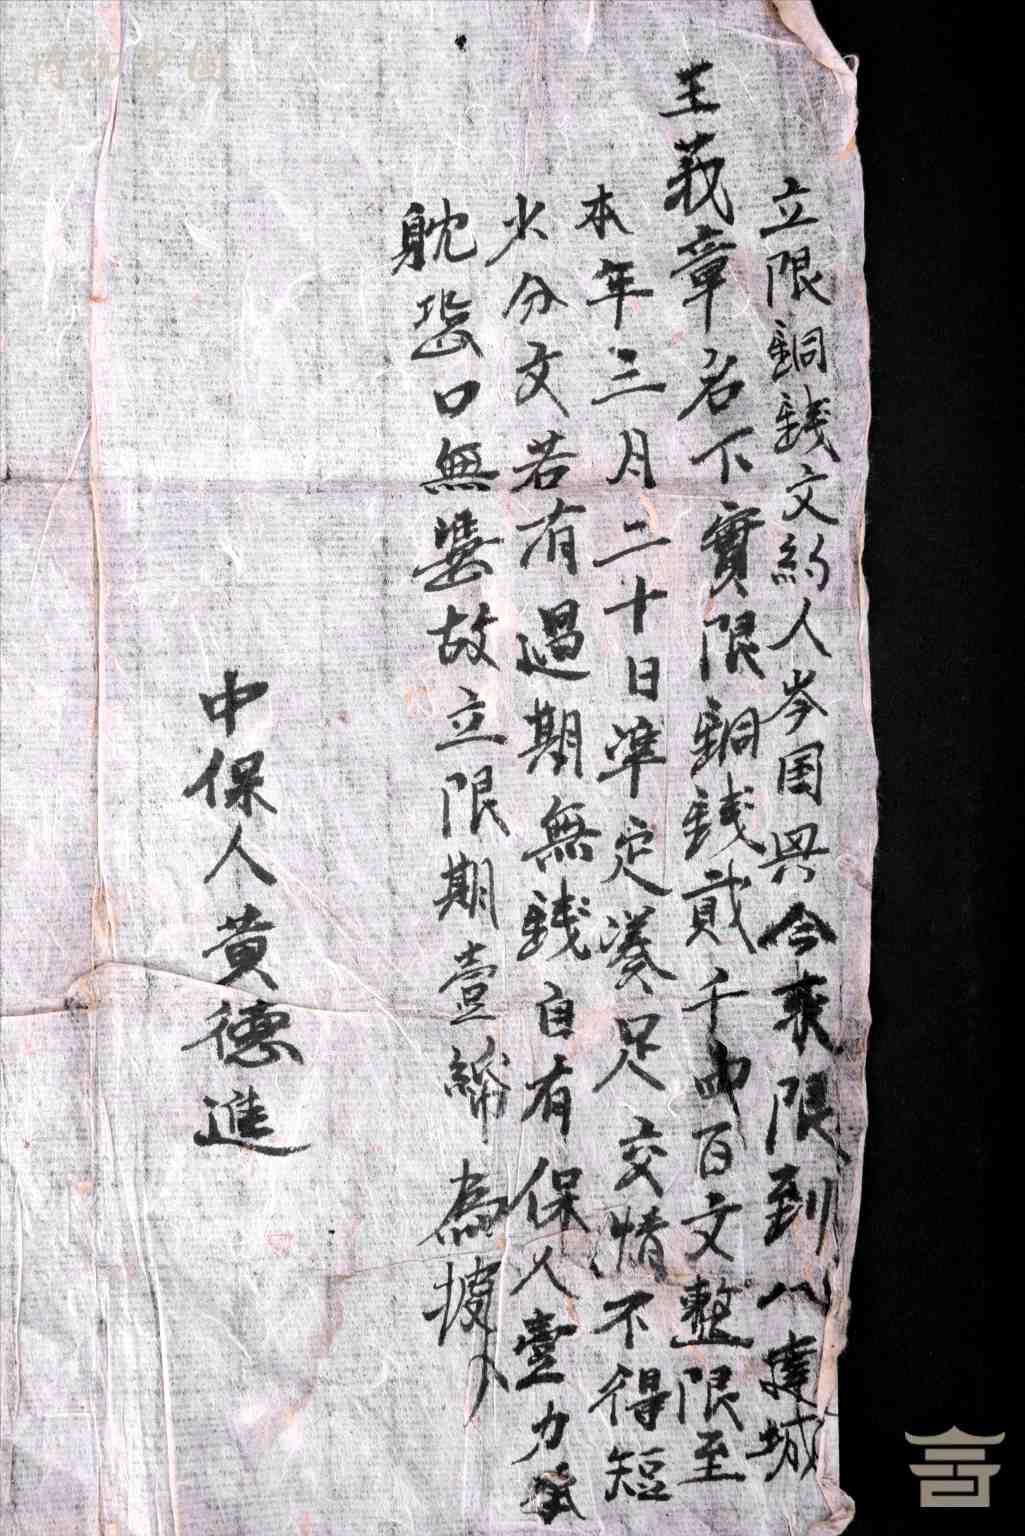 立限銅錢文約人岑国興今來限到八達城
王義章名下實限銅錢貳千四百文整限至
本年三月二十日準定湊足交情不得短
少分文若有過期無錢自有保人壹力承
躭恐口無凴故立限期壹紙為據
中保人黄德進